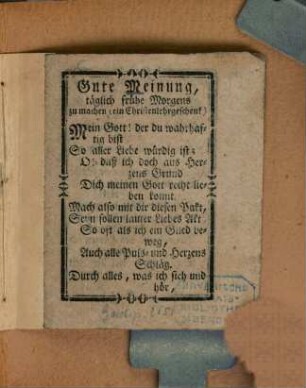 Gute Meinung,
täglich frühe Morgens
zu machen (ein Christenlehrgeschenk)
Mein Gott! der du wahrhaf-
tig bist
So aller Liebe würdig ist:
O! daß ich doch aus Her-
zens Grund
Dich meinen Gott recht lie-
ben konnt
Mach also mit dir diesen Pakt,
Seyn sollen lauter Liebes Akt
So oft als ich ein Glied be-
weg,
Auch alle Puls- und Herzens
Schläg.
Durch alles, was ich sieh und
hör,